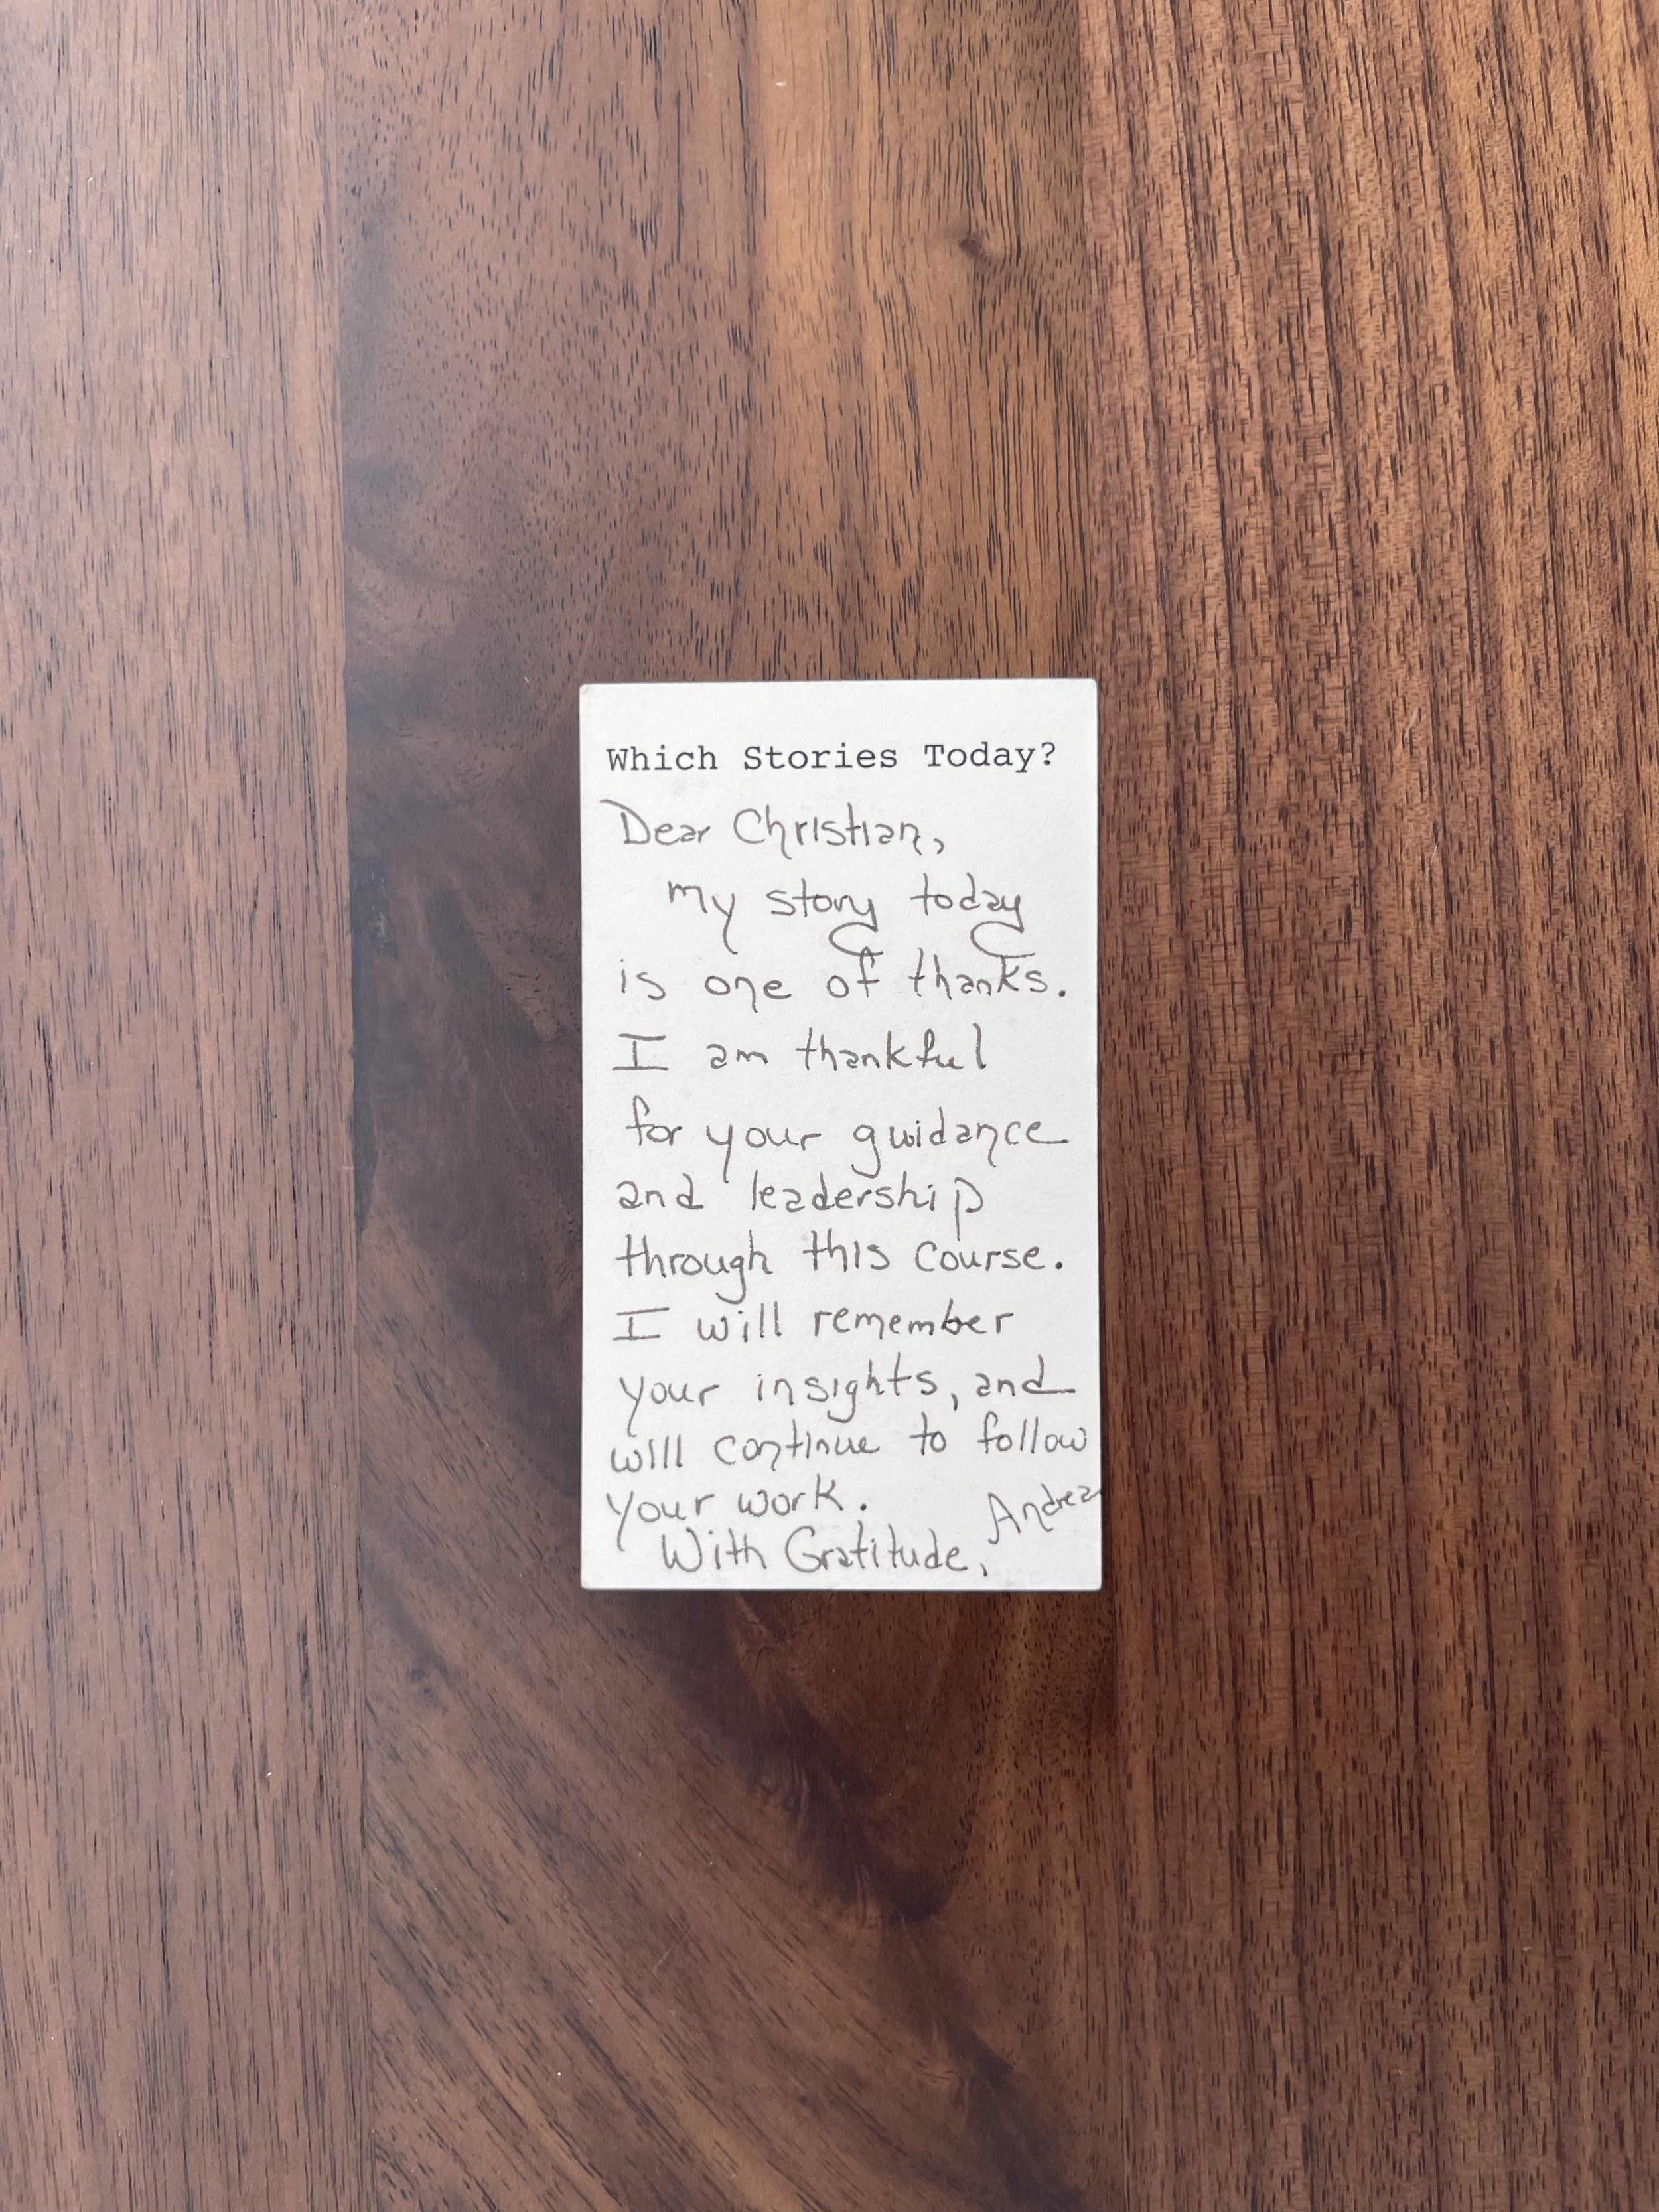 Which Stories Today?
Dear Christian,
my story today
is one of thanks.
I am thankful
for your guidance
and leadership
through this course.
I will remember
your insights, and
will continue to follow
your work.
With Gratitude,
Andrea